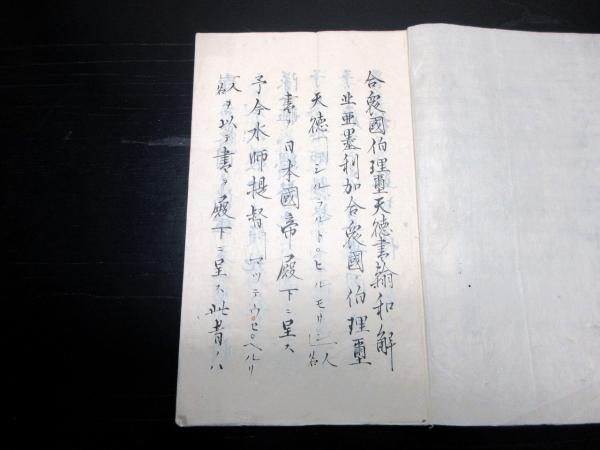 合衆國伯理璽天徳書翰和解
北亜墨利加合衆國伯理璽
天徳「ミルラルド。ヒルモオレ」人名
書ヲ日本國帝殿下ニ呈ス
予今水師提督「マツテウ。セ。ペルリ
人名ヲ以テ書ヲ殿下ニ呈ス此書ハ